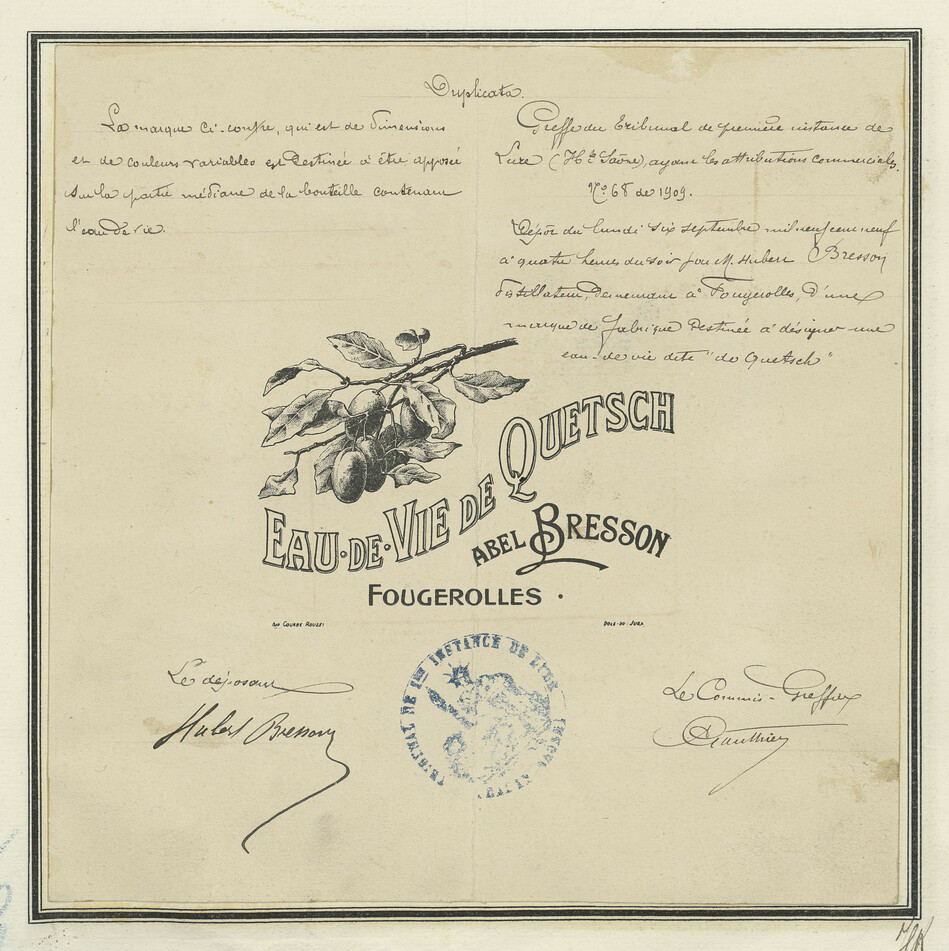 Duplicata.
La marque ci-contre, qui est de dimensions
et de couleurs variables est destinée à être apposée
sur la partie médiane de la bouteille contenant
l'eau de vie.
Greffe du Tribunal de première instance de
Lure (Hte Saône), ayant les attributions commerciales.
No 68 de 1909.
Dépôt du lundi six septembre mil neuf cent neuf
à quatre heures du soir par M. Hubert Bresson
distillateur, demeurant à Fougerolles, d'une
marque de fabrique destinée à désigner une
eau-de-vie dite "de Quetsch"
EAU-DE-VIE DE QUETSCH
ABEL BRESSON
FOUGEROLLES
COURBE ROUZET
DOLE-DU-JURA
Le déposant
Hubert Bresson
Le Commis-Greffier
Gauthier
TRIBUNAL DE 1ERE INSTANCE DE LURE